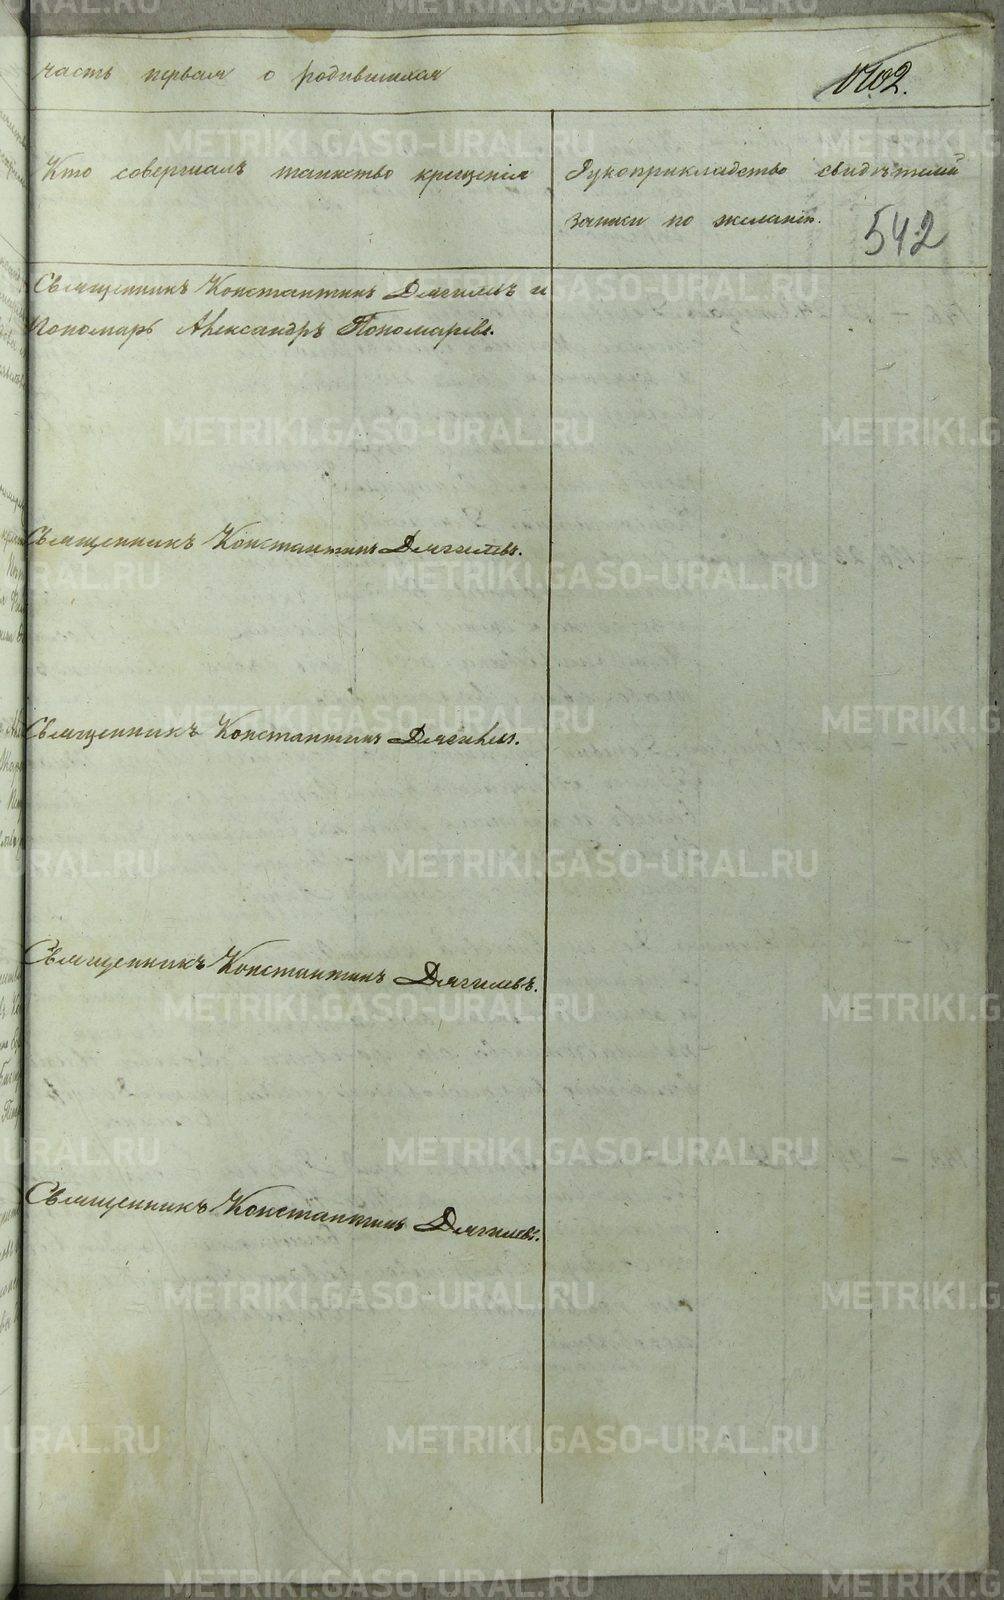 часть первая о родившихся
Кто совершалъ таинство крещенія
Рукоприкладство свидѣтелей
записи по желанію.
542
Священникъ Константинъ Дягилевъ и
Пономарь Александръ Пономаревъ.
Священникъ Константинъ Дягилевъ.
Священникъ Константинъ Дягилевъ.
Священникъ Константинъ Дягилевъ.
Священникъ Константинъ Дягилевъ.
METRIKI.GASO-URAL.RU